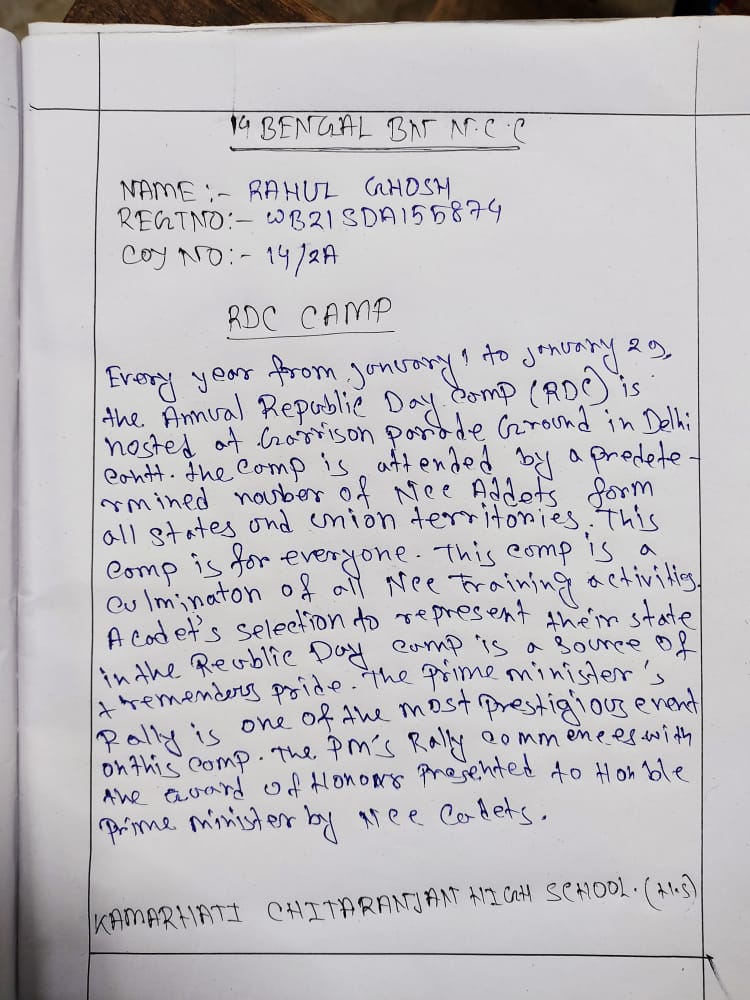 14 BENGAL BN N.C.C
NAME :- RAHUL GHOSH
REGTNO:- WB21SDA155874
COY NO:- 14/2A
RDC CAMP
Every year from January 1 to January 29,
the Annual Republic Day Camp (RDC) is
hosted at Garrison parade Ground in Delhi
Cantt. the Camp is attended by a predete-
rmined nouber of Ncc Addets form
all states and union territories. This
Comp is for everyone. This comp is a
Culminaton of all Ncc Training activities.
A cadet's selection to represent their state
in the Reublic Day camp is a source of
tremenders pride. The prime minister's
Rally is one of the most prestigious event
on this comp. The PM's Rally commences with
the award of Honors presented to Hon ble
prime minister by Ncc Cadets.
KAMARHATI CHITARANJAN HIGH SCHOOL. (H.S)